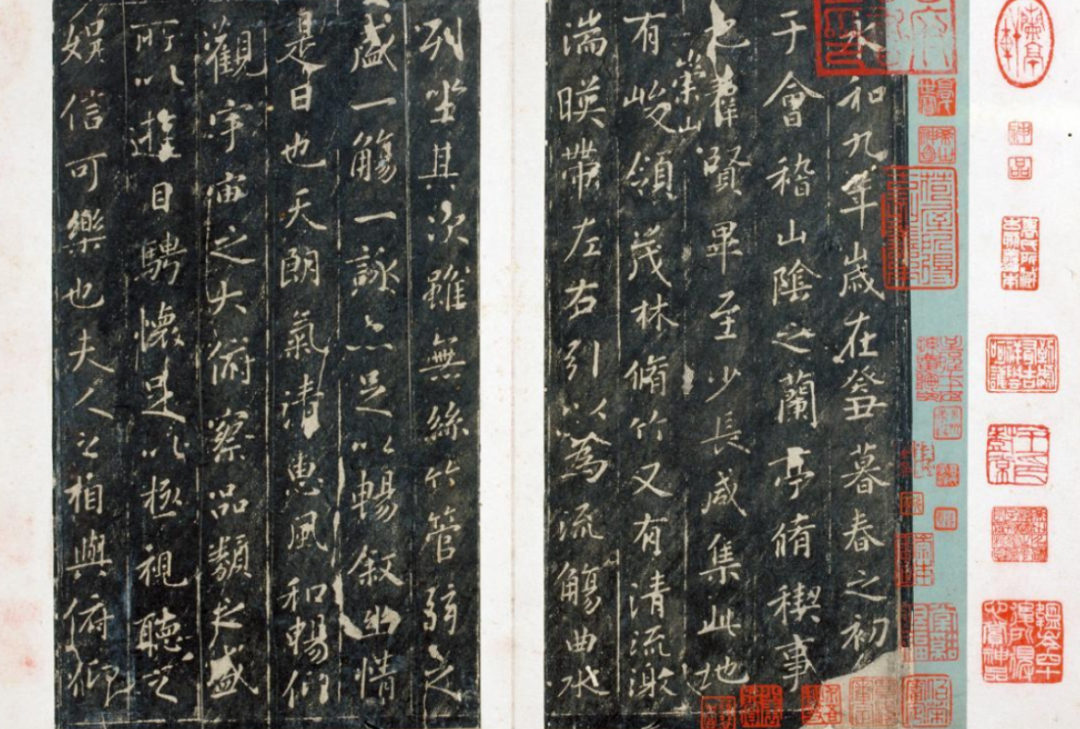 永和九年歲在癸丑暮春之初
于會稽山陰之蘭亭脩稧事
也羣賢畢至少長咸集此地
有崇山峻領茂林脩竹又有清流激
湍暎帶左右引以為流觴曲水
列坐其次雖無絲竹管弦之
盛一觴一詠亦足以暢敘幽情
是日也天朗氣清惠風和暢仰
觀宇宙之大俯察品類之盛
所以遊目騁懷足以極視聽之
娛信可樂也夫人之相與俯仰
神品